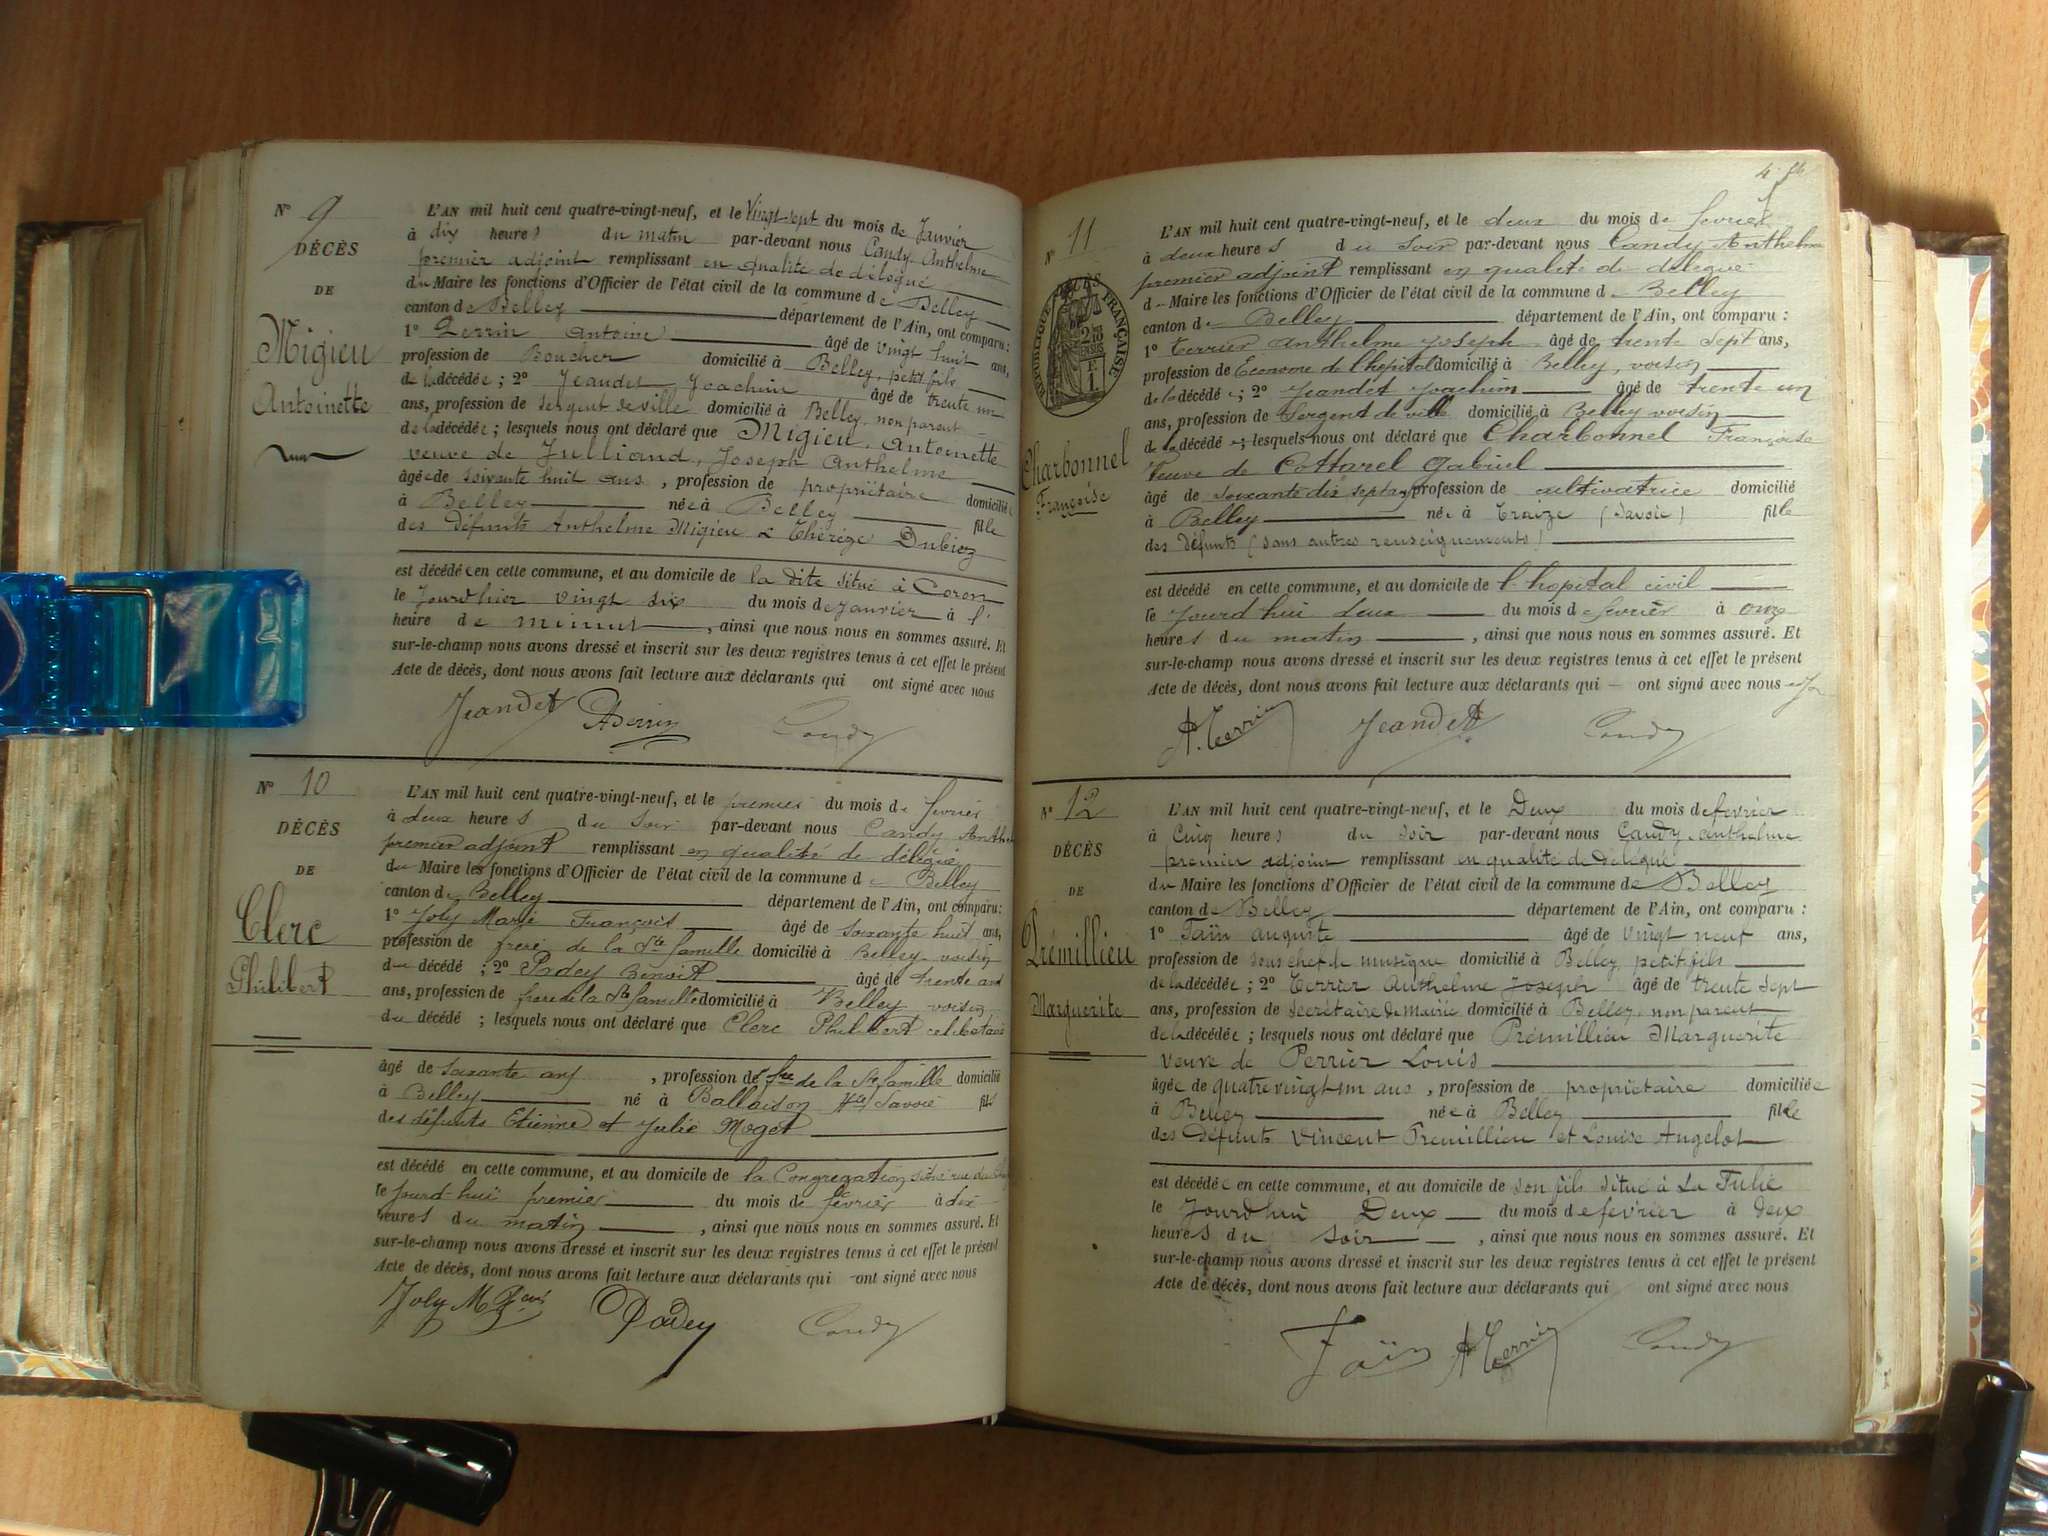 N° 9
DÉCÈS
DE
Migieu
Antoinette
L'AN mil huit cent quatre-vingt-neuf, et le Vingt sept du mois de Janvier
à dix heures du matin par-devant nous Candy, Anthelme
premier adjoint remplissant en qualité de délégué
du Maire les fonctions d'Officier de l'état civil de la commune de Belley
canton de Belley département de l'Ain, ont comparu :
1° Perrin Antoine âgé de vingt huit ans,
profession de Boucher domicilié à Belley, petit fils
de la décédée ; 2° Jeandet Joachim âgé de trente un
ans, profession de sergent de ville domicilié à Belley, non parent
de la décédée ; lesquels nous ont déclaré que Migieu, Antoinette
veuve de Julliand, Joseph Anthelme
âgée de soixante huit ans , profession de propriétaire domiciliée
à Belley née à Belley fille
des défunts Anthelme Migieu & Thérèze Dubiez
est décédée en cette commune, et au domicile de la dite situé à Coron
le Jourd'hier vingt six du mois de janvier à l'
heure de minuit , ainsi que nous nous en sommes assuré. Et
sur-le-champ nous avons dressé et inscrit sur les deux registres tenus à cet effet le présent
Acte de décès, dont nous avons fait lecture aux déclarants qui ont signé avec nous
Jeandet APerrin Candy
N° 10
DÉCÈS
DE
Clerc
Philibert
L'AN mil huit cent quatre-vingt-neuf, et le premier du mois de février
à deux heures du soir par-devant nous Candy Anthe
premier adjoint remplissant en qualité de délégué
du Maire les fonctions d'Officier de l'état civil de la commune de Belley
canton de Belley département de l'Ain, ont comparu :
1° Joly Marie François âgé de soixante huit ans,
profession de frère de la Ste famille domicilié à Belley voisin
du décédé ; 2° Padey Benoit âgé de trente
ans, profession de frere de la Ste famille domicilié à Belley voisin
du décédé ; lesquels nous ont déclaré que Clerc Philibert celibataire
âgé de soixante ans , profession de fre de la Ste famille domicilié
à Belley né à Ballaison Hte Savoie fils
des défunts Etienne et Julie Moget
est décédé en cette commune, et au domicile de la Congregation situé rue
le jourd'hui premier du mois de février à dix
heures du matin , ainsi que nous nous en sommes assuré. Et
sur-le-champ nous avons dressé et inscrit sur les deux registres tenus à cet effet le présent
Acte de décès, dont nous avons fait lecture aux déclarants qui ont signé avec nous
Joly M Padey Candy
4
N° 11
DÉCÈS
RÉPUBLIQUE FRANÇAISE
Charbonnel
Françoise
L'AN mil huit cent quatre-vingt-neuf, et le deux du mois de fevrier
à deux heures du soir par-devant nous Candy Anthelme
premier adjoint remplissant en qualité de délégué
du Maire les fonctions d'Officier de l'état civil de la commune de Belley
canton de Belley département de l'Ain, ont comparu :
1° Terrier Anthelme Joseph âgé de trente sept ans,
profession de Econome de l'hopital domicilié à Belley, voisin
de la décédée ; 2° Jeandet Joachim âgé de trente un
ans, profession de Sergent de ville domicilié à Belley voisin
de la décédée ; lesquels nous ont déclaré que Charbonnel Françoise
Veuve de Cottarel Gabriel
âgé de soixante dix sept ans profession de cultivatrice domicilié
à Belley née à Traize (Savoie) fille
des défunts (sans autres renseignements)
est décédé en cette commune, et au domicile de l'hopital civil
le jourd'hui deux du mois de fevrier à onze
heures du matin , ainsi que nous nous en sommes assuré. Et
sur-le-champ nous avons dressé et inscrit sur les deux registres tenus à cet effet le présent
Acte de décès, dont nous avons fait lecture aux déclarants qui ont signé avec nous
A. Terrier Jeandet Candy
N° 12
DÉCÈS
DE
Prémillieu
Marguerite
L'AN mil huit cent quatre-vingt-neuf, et le Deux du mois de fevrier
à Cinq heures du soir par-devant nous Candy, anthelme
premier adjoint remplissant en qualité de délégué
du Maire les fonctions d'Officier de l'état civil de la commune de Belley
canton de Belley département de l'Ain, ont comparu :
1° Faïn auguste âgé de vingt neuf ans,
profession de sous chef de musique domicilié à Belley, petit fils
de la décédée ; 2° Terrier Anthelme Joseph âgé de trente sept
ans, profession de secrétaire de mairie domicilié à Belley, non parent
de la décédée ; lesquels nous ont déclaré que Prémillieu Marguerite
veuve de Perrier Louis
âgée de quatre vingt un ans , profession de propriétaire domiciliée
à Belley née à Belley fille
des défunts Vincent Premillieu et Louise Angelot
est décédée en cette commune, et au domicile de son fils situé à La Tulie
le Jourd'hui Deux du mois de fevrier à deux
heures du soir , ainsi que nous nous en sommes assuré. Et
sur-le-champ nous avons dressé et inscrit sur les deux registres tenus à cet effet le présent
Acte de décès, dont nous avons fait lecture aux déclarants qui ont signé avec nous
Faïn A Terrier Candy